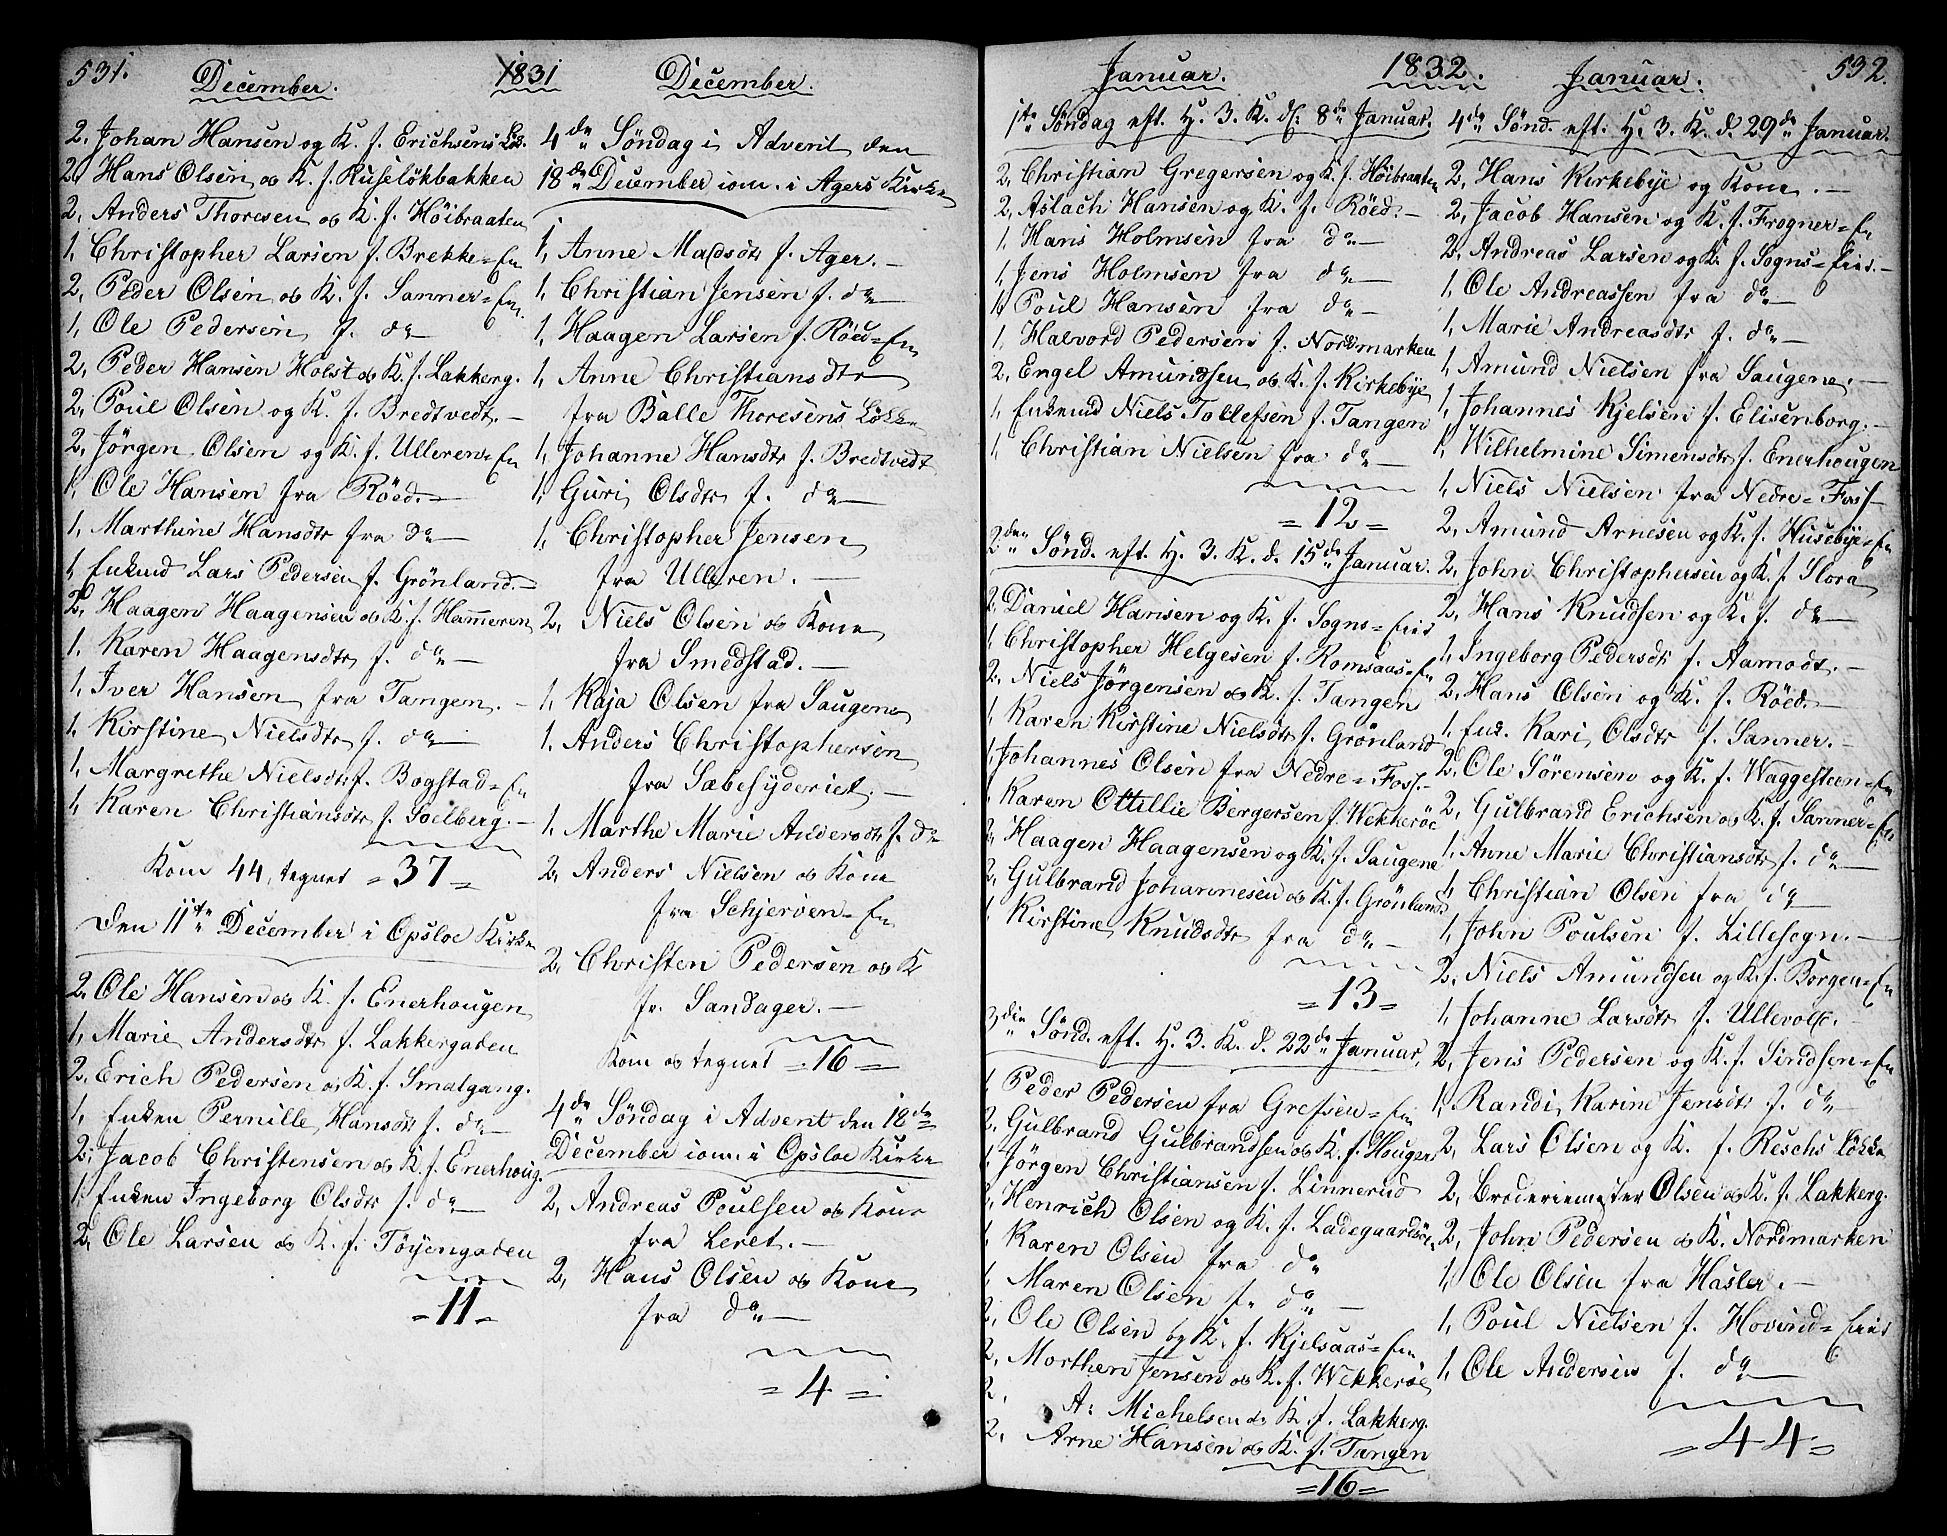 531.
December.
1831
December.
2, Johan Hansen og K. f. Erichsens Løk.
2, Hans Olsen og K. f. Ruseløkbakken
2, Anders Thoresen og K. f. Høibraaten
1, Christopher Larsen f. Brekke=En
2, Peder Olsen og K. f. Sanner=En.
1, Ole Pedersen f. do —
2, Peder Hansen Holst og K. f. Lakkerg.
2, Poul Olsen og K. f. Bredtvedt. —
2, Jørgen Olsen og K. f. Ulleren=En
1, Ole Hansen fra Röed. —
1, Marthine Hansdtr fra do —
1, Enkemd Lars Pedersen f. Grönland. —
2, Haagen Haagensen og K. f. Hammeren
1, Karen Haagensdtr f. do —
1, Iver Hansen fra Tangen. —
1, Kirstine Nielsdtr f. do —
1, Margrethe Nielsdtr f. Bogstad=En
1, Karen Christiansdtr f. Soelberg. —
Kom 44, tegnet =37=
Den 11te December i Opsloe Kirke
2, Ole Hansen og K. f. Enerhougen
1, Marie Andersdtr f. Lakkergaden
2, Erich Pedersen og K. f. Smalgang.
1, Enken Pernille Hansdtr f. do —
2, Jacob Christensen og K. f. Enerhoug.
1, Enken Ingeborg Olsdtr f. do —
2, Ole Larsen og K. f. Töyengaden
=11=
4de Söndag i Advent den
18de December iom. i Agers Kirke
1, Anne Madsdtr f. Ager. —
1, Christian Jensen f. do —
1, Haagen Larsen f. Röed=En
1, Anne Christiansdtr
fra Balle Thoresens Løkke
1, Johanne Hansdtr f. Bredtvedt
1, Guri Olsdtr f. do —
1, Christopher Jensen
fra Ulleren. —
2, Niels Olsen og Kone
fra Smedstad. —
1, Kaja Olsen fra Saugene
1, Anders Christophersen
fra Sæbesyderiet. —
1, Marthe Marie Andersdtr f. do
2, Anders Nielsen og Kone
fra Schjerven=En
2, Christen Pedersen og K
fr. Sandager. —
Kom og tegnet =16=
4de Söndag i Advent den 18de
December iom: i Opsloe Kirke
2, Andreas Poulsen og Kone
fra Leret. —
2, Hans Olsen og Kone
fra do —
=4=
Januar.
1832.
Januar.
532.
1te Söndag eft. H. 3. K. d: 8de Januar.
2, Christian Gregersen og K. f. Höibraaten
2, Aslach Hansen og K. f. Röed. —
1, Hans Holmsen fra do —
1, Jens Holmsen fra do —
1, Poul Hansen fra do —
1, Halvord Pedersen f. Nordmarken
2, Engel Amundsen og K. f. Kirkebye
1, Enkemd Niels Tollefsen f. Tangen
1, Christian Nielsen fra do —
=12=
2den Sönd. eft. H. 3. K. d. 15de Januar.
2, Daniel Hansen og K. f. Sogns=Eies
1, Christopher Helgesen f. Romsaas=En
2, Niels Jörgensen og K. f. Tangen
1, Karen Kirstine Nielsdtr f. Grönland
1, Johannes Olsen fra Nedre=Foss. —
1, Karen Ottillie Bergersen f. Wekkeröe
2, Haagen Haagensen og K. f. Saugene
2, Gulbrand Johannesen og K. f. Grönland
1, Kirstine Knudsdtr fra do —
=13=
3die Sönd. eft. H. 3. K. d. 22de Januar.
1, Peder Pedersen fra Grefsen=En
2, Gulbrand Gulbrandsen og K. f. Hougen
1, Jörgen Christiansen f. Linnerud
2, Henrich Olsen og K. f. Ladegaardsöen
1, Karen Olsen fra do
1, Maren Olsen f. do —
2, Ole Olsen og K. f. Kjelsaas=En
2, Morthen Jensen og K. f. Wekkeröe
2, A: Michelsen og K. f. Lakkerg.
2, Arne Hansen og K. f. Tangen
=16=
4de Sönd. eft. H. 3. K. d. 29de Januar.
2, Hans Kirkebye og Kone. —
2, Jacob Hansen og K. f. Frogner=En
2, Andreas Larsen og K. f. Sogns=Eies. —
1, Ole Andreassen fra do —
1, Marie Andreasdtr f. do —
1, Amund Nielsen fra Saugene. —
1, Johannes Kjelsen f. Elisenborg. —
1, Wilhelmine Simensdtr f. Enerhougen
1, Niels Nielsen fra Nedre=Foss
2, Amund Arnesen og K. f. Husebye=En
2, John Christophersen og K. f. Slora
2, Hans Knudsen og K. f. do —
1, Ingeborg Pedersdtr f. Aamodt. —
2, Hans Olsen og K. f. Röed. —
1, Enk. Kari Olsdtr f. Sanner. —
2, Ole Sörensen og K. f. Waggesteen=En
2, Gulbrand Erichsen og K. f. Sanner=En
1, Anne Marie Christiansdtr f. do —
1, Christian Olsen fra do —
1, John Poulsen f. Lillesogn. —
2, Niels Amundsen og K. f. Borgen=En
1, Johanne Larsdtr f. Ullevold. —
2, Jens Pedersen og K. f. Sindsen=En
1, Randi Karine Jensdtr f. do —
2, Lars Olsen og K. f. Reschs Løkke
2, Broderiemester Olsen og K. f. Lakkerg.
2, John Pedersen og K. Nordmarken
1, Ole Olsen fra Hasler. —
1, Poul Nielsen f. Hovind=Eies
1, Ole Andersen f. do —
=44=